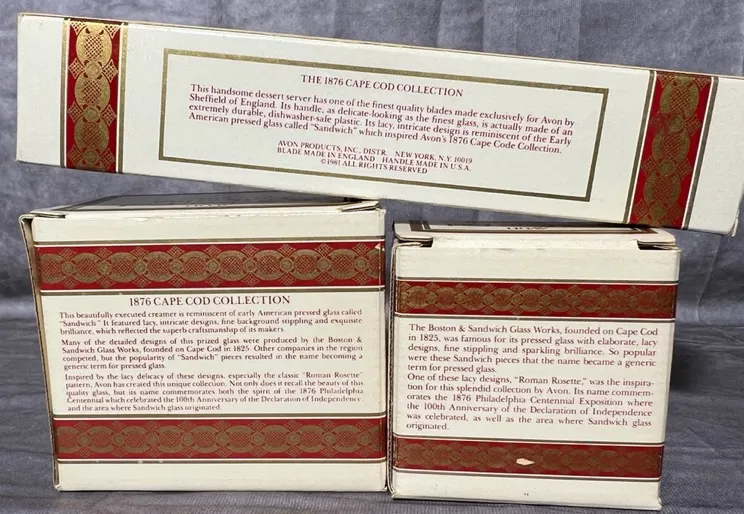 THE 1876 CAPE COD COLLECTION
This handsome dessert server has one of the finest quality blades made exclusively for Avon by
Sheffield of England. Its handle, as delicate-looking as the finest glass, is actually made of an
extremely durable, dishwasher-safe plastic. Its lacy, intricate design is reminiscent of the Early
American pressed glass called "Sandwich" which inspired Avon's 1876 Cape Cod Collection.
AVON PRODUCTS, INC., DISTR. NEW YORK, N.Y. 10019
BLADE MADE IN ENGLAND HANDLE MADE IN U.S.A.
©1981 ALL RIGHTS RESERVED
1876 CAPE COD COLLECTION
This beautifully executed creamer is reminiscent of early American pressed glass called
"Sandwich." It featured lacy, intricate designs, fine background stippling and exquisite
brilliance, which reflected the superb craftsmanship of its makers.
Many of the detailed designs of this prized glass were produced by the Boston &
Sandwich Glass Works, founded on Cape Cod in 1825. Other companies in the region
competed, but the popularity of "Sandwich" pieces resulted in the name becoming a
generic term for pressed glass.
Inspired by the lacy delicacy of these designs, especially the classic "Roman Rosette"
pattern, Avon has created this unique collection. Not only does it recall the beauty of this
quality glass, but its name commemorates both the spirit of the 1876 Philadelphia
Centennial which celebrated the 100th Anniversary of the Declaration of Independence
and the area where Sandwich glass originated.
The Boston & Sandwich Glass Works, founded on Cape Cod
in 1825, was famous for its pressed glass with elaborate, lacy
designs, fine stippling and sparkling brilliance. So popular
were these Sandwich pieces that the name became a generic
term for pressed glass.
One of these lacy designs, "Roman Rosette," was the inspira-
tion for this splendid collection by Avon. Its name commem-
orates the 1876 Philadelphia Centennial Exposition where
the 100th Anniversary of the Declaration of Independence
was celebrated, as well as the area where Sandwich glass
originated.